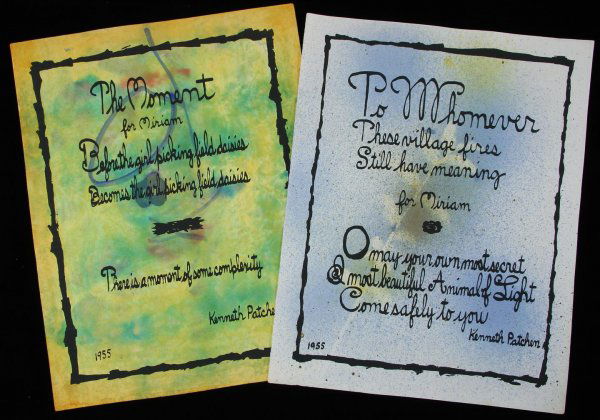 The Moment
for Miriam
Before the girl picking field daisies
Becomes the girl picking field daisies
There is a moment of some complexity
Kenneth Patchen
1955
To Whomever
These village fires
Still have meaning
for Miriam
O may your own most secret
& most beautiful Animal of Light
Come safely to you
Kenneth Patchen
1955